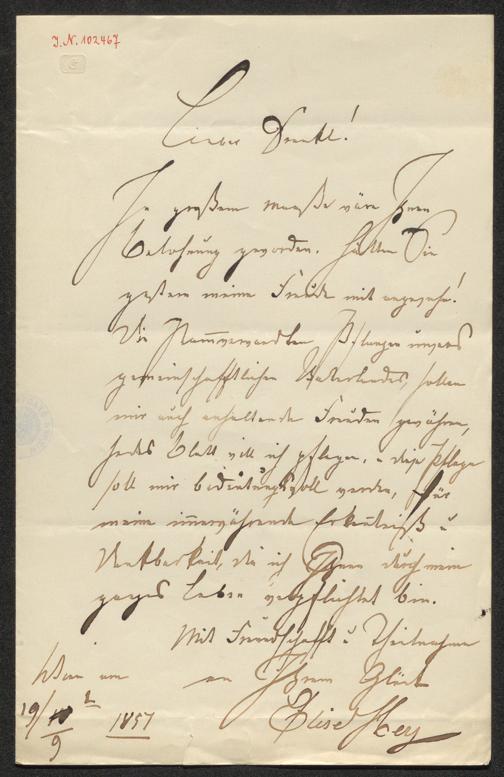 I.N. 102467
Lieber Frankl!
In großem Maaße wäre Ihnen
Belohnung geworden, hätten Sie
gestern meine Freude mit angesehn!
Die Stammverwandten Pflanzen unseres
gemeinschafftlichen Vaterlandes, sollen
mir auch anhaltende Freuden gewähren,
jedes Blatt will ich pflegen, u diese Pflege
soll mir bedeutungsvoll werden, für
meine immerwährende Erkentniß u
Dankbarkeit, die ich Ihnen durch mein
ganzes Leben verpflichtet bin.
Mit Freundschafft u Theilnahme
an Ihrem Glück
Wien am
19/9 1851
Elise